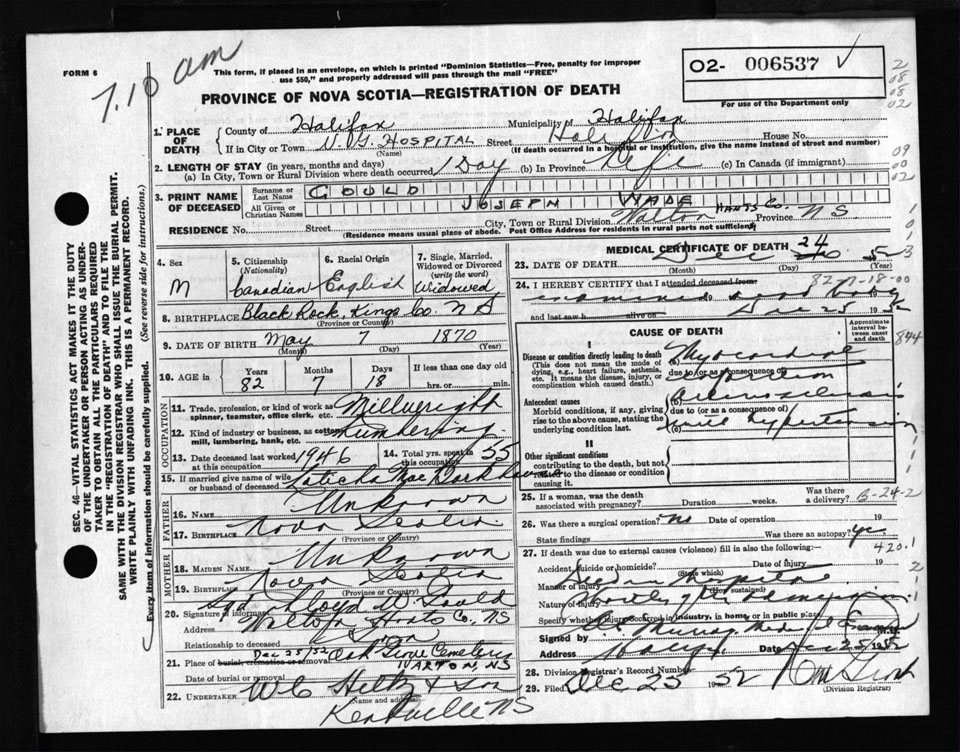 7.10 am
FORM 6
This form, if placed in an envelope, on which is printed "Dominion Statistics—Free, penalty for improper
use $50," and properly addressed will pass through the mail "FREE"
O2- 006537
For use of the Department only
PROVINCE OF NOVA SCOTIA—REGISTRATION OF DEATH
1. PLACE OF DEATH
County of Halifax Municipality of Halifax
If in City or Town V.G. HOSPITAL Street House No.
(Name) (If death occurred in a hospital or institution, give the name instead of street and number)
2. LENGTH OF STAY (in years, months and days)
(a) In City, Town or Rural Division where death occurred 1 Day (b) In Province Life (c) In Canada (if immigrant)
3. PRINT NAME OF DECEASED
Surname or Last Name GOULD
All Given or Christian Names JOSEPH WADE
RESIDENCE No. Street City, Town or Rural Division Walton HANTS Co. Province N S
(Residence means usual place of abode. Post Office Address for residents in rural parts not sufficient)
4. Sex M
5. Citizenship (Nationality) Canadian
6. Racial Origin English
7. Single, Married, Widowed or Divorced (write the word) Widowed
8. BIRTHPLACE Black Rock, Kings Co. N S
(Province or Country)
9. DATE OF BIRTH May 7 1870
(Month) (Day) (Year)
10. AGE in Years 82 Months 7 Days 18 If less than one day old hrs. or min.
OCCUPATION
11. Trade, profession, or kind of work as spinner, teamster, office clerk, etc. Millwright
12. Kind of industry or business, as cotton mill, lumbering, bank, etc. Lumbering
13. Date deceased last worked at this occupation 1946
14. Total yrs. spent in this occupation 55
15. If married give name of wife or husband of deceased
FATHER
16. Name Unknown
17. Birthplace Nova Scotia
(Province or Country)
MOTHER
18. MAIDEN NAME Unknown
19. BIRTHPLACE Nova Scotia
(Province or Country)
20. Signature of informant Lloyd W Gould
Address Walton Hants Co., NS
Relationship to deceased Son
21. Place of burial, cremation or removal Oak Grove Cemetery
Date of burial or removal Dec 25/52
22. UNDERTAKER W C Hiltz & Son
(Name and address)
Kentville NS
MEDICAL CERTIFICATE OF DEATH
23. DATE OF DEATH Dec 24
(Month) (Day) (Year)
24. I HEREBY CERTIFY that I attended deceased from
examined dead body
and last saw h alive on Dec 25 1952
82-7-18-00
CAUSE OF DEATH
Approximate interval between onset and death
I
Disease or condition directly leading to death
(This does not mean the mode of dying, e.g., heart failure, asthenia, etc. It means the disease, injury, or complication which caused death.)
(a) Myocardial infarction
due to (or as a consequence of)
Antecedent causes
Morbid conditions, if any, giving rise to the above cause, stating the underlying condition last.
(b) arteriosclerosis
due to (or as a consequence of)
(c) hypertension
II
Other significant conditions
contributing to the death, but not related to the disease or condition causing it.
844
25. If a woman, was the death associated with pregnancy? Duration weeks. Was there a delivery?
6-24-2
26. Was there surgical operation? no Date of operation 19
State findings Was there an autopsy? yes
420.1
27. If death was due to external causes (violence) fill in also the following:—
Accident, suicide or homicide? Date of injury 19
(State which)
Manner of injury
(How sustained)
Nature of injury shortly after admission
Specify whether injury occurred in industry, in home or in public place
Signed by Murray Medical Examiner
Address Date Dec 25 1952
28. Division Registrar's Record Number
29. Filed Dec 25 1952
(Division Registrar)
SEC. 46—VITAL STATISTICS ACT MAKES IT THE DUTY
OF THE UNDERTAKER OR PERSON ACTING AS UNDER-
TAKER TO OBTAIN ALL THE PARTICULARS REQUIRED
IN THE "REGISTRATION OF DEATH" AND TO FILE THE
SAME WITH THE DIVISION REGISTRAR WHO SHALL ISSUE THE BURIAL PERMIT.
WRITE PLAINLY WITH UNFADING INK. THIS IS A PERMANENT RECORD.
Every item of information should be carefully supplied. (See reverse side for instructions.)